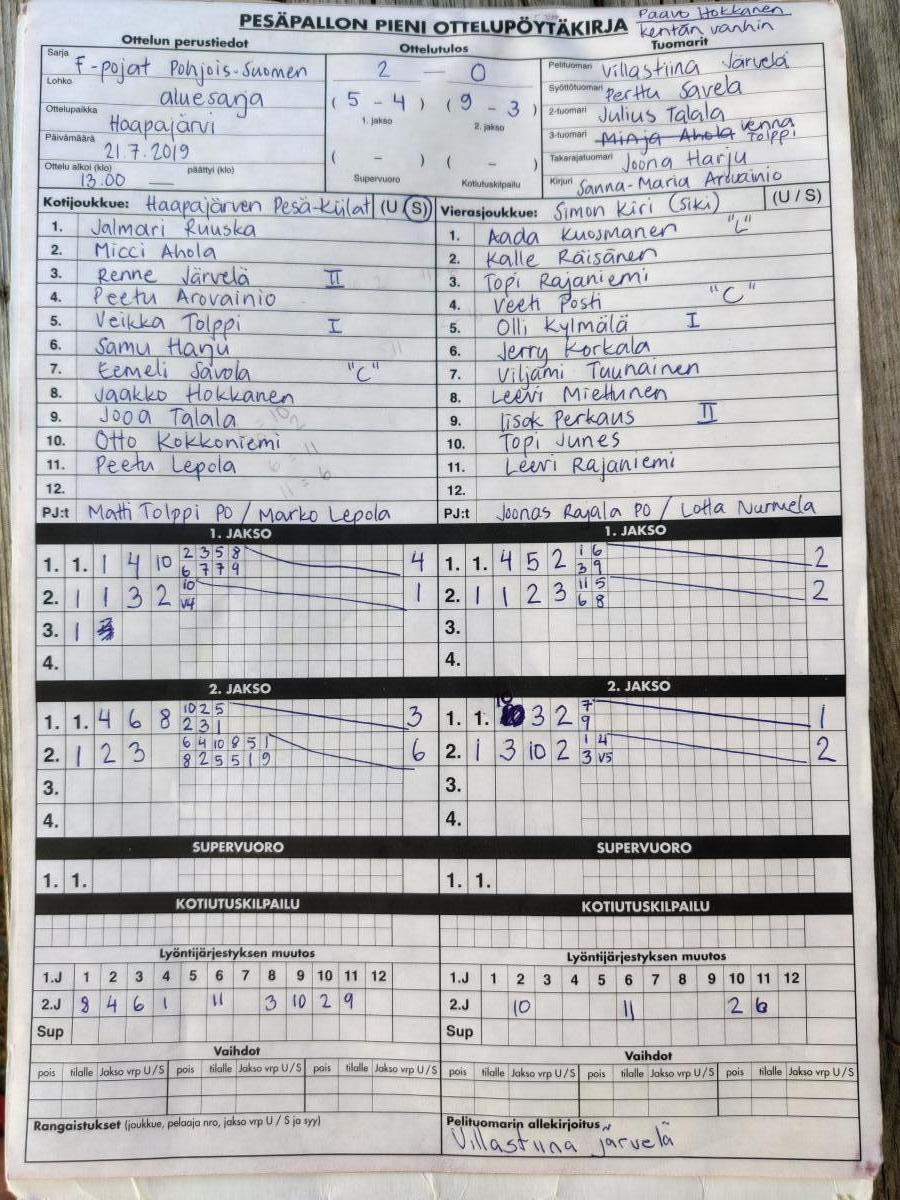 PESÄPALLON PIENI OTTELUPÖYTÄKIRJA
Paavo Hokkanen
kentän vanhin
Ottelun perustiedot
Sarja
F-pojat Pohjois-Suomen
Lohko
aluesarja
Ottelupaikka
Haapajärvi
Päivämäärä
21.7.2019
Ottelu alkoi (klo) päättyi (klo)
13.00 —
Ottelutulos
2 — 0
( 5 - 4 ) ( 9 - 3 )
1. jakso 2. jakso
( - ) ( - )
Supervuoro Kotiutuskilpailu
Tuomarit
Pelituomari Villastiina Järvelä
Syöttötuomari Perttu Savela
2-tuomari Julius Talala
3-tuomari Minja Ahola Venna Tolppi
Takarajatuomari Joona Harju
Kirjuri Sanna-Maria Arovainio
Kotijoukkue: Haapajärven Pesä-Kiilat (U / S)
1. Jalmari Ruuska
2. Micci Ahola
3. Renne Järvelä II
4. Peetu Arovainio
5. Veikka Tolppi I
6. Samu Harju
7. Eemeli Savola "C"
8. Jaakko Hokkanen
9. Jooa Talala
10. Otto Kokkoniemi
11. Peetu Lepola
12.
PJ:t Matti Tolppi PO / Marko Lepola
Vierasjoukkue: Simon Kiri (Siki) (U / S)
1. Aada Kuosmanen "L"
2. Kalle Räisänen
3. Topi Rajaniemi
4. Veeti Posti "C"
5. Olli Kylmälä I
6. Jerry Korkala
7. Viljami Tuunainen
8. Leevi Miettunen
9. Iisak Perkaus II
10. Topi Junes
11. Leevi Rajaniemi
12.
PJ:t Joonas Rajala PO / Lotta Nurmela
1. JAKSO
1. 1. 1 4 10 2 3 5 8 4
6 7 7 9
2. 1 1 3 2 10 1
V4
3. 1
4.
1. JAKSO
1. 1. 4 5 2 1 6 2
3 9
2. 1 1 2 3 11 5 2
6 8
3.
4.
2. JAKSO
1. 1. 4 6 8 10 2 5 3
2 3 1
2. 1 2 3 6 4 10 8 5 1 6
8 2 5 5 1 9
3.
4.
2. JAKSO
1. 1. 10 3 2 7 1
9
2. 1 3 10 2 1 4 2
3 V5
3.
4.
SUPERVUORO
1. 1.
SUPERVUORO
1. 1.
KOTIUTUSKILPAILU
KOTIUTUSKILPAILU
Lyöntijärjestyksen muutos
1.J 1 2 3 4 5 6 7 8 9 10 11 12
2.J 8 4 6 1 11 3 10 2 9
Sup
Lyöntijärjestyksen muutos
1.J 1 2 3 4 5 6 7 8 9 10 11 12
2.J 10 11 2 6
Sup
Vaihdot
pois tilalle Jakso vrp U / S pois tilalle Jakso vrp U / S pois tilalle Jakso vrp U / S
Vaihdot
pois tilalle Jakso vrp U / S pois tilalle Jakso vrp U / S pois tilalle Jakso vrp U / S
Rangaistukset (joukkue, pelaaja nro, jakso vrp U / S ja syy)
Pelituomarin allekirjoitus
Villastiina Järvelä